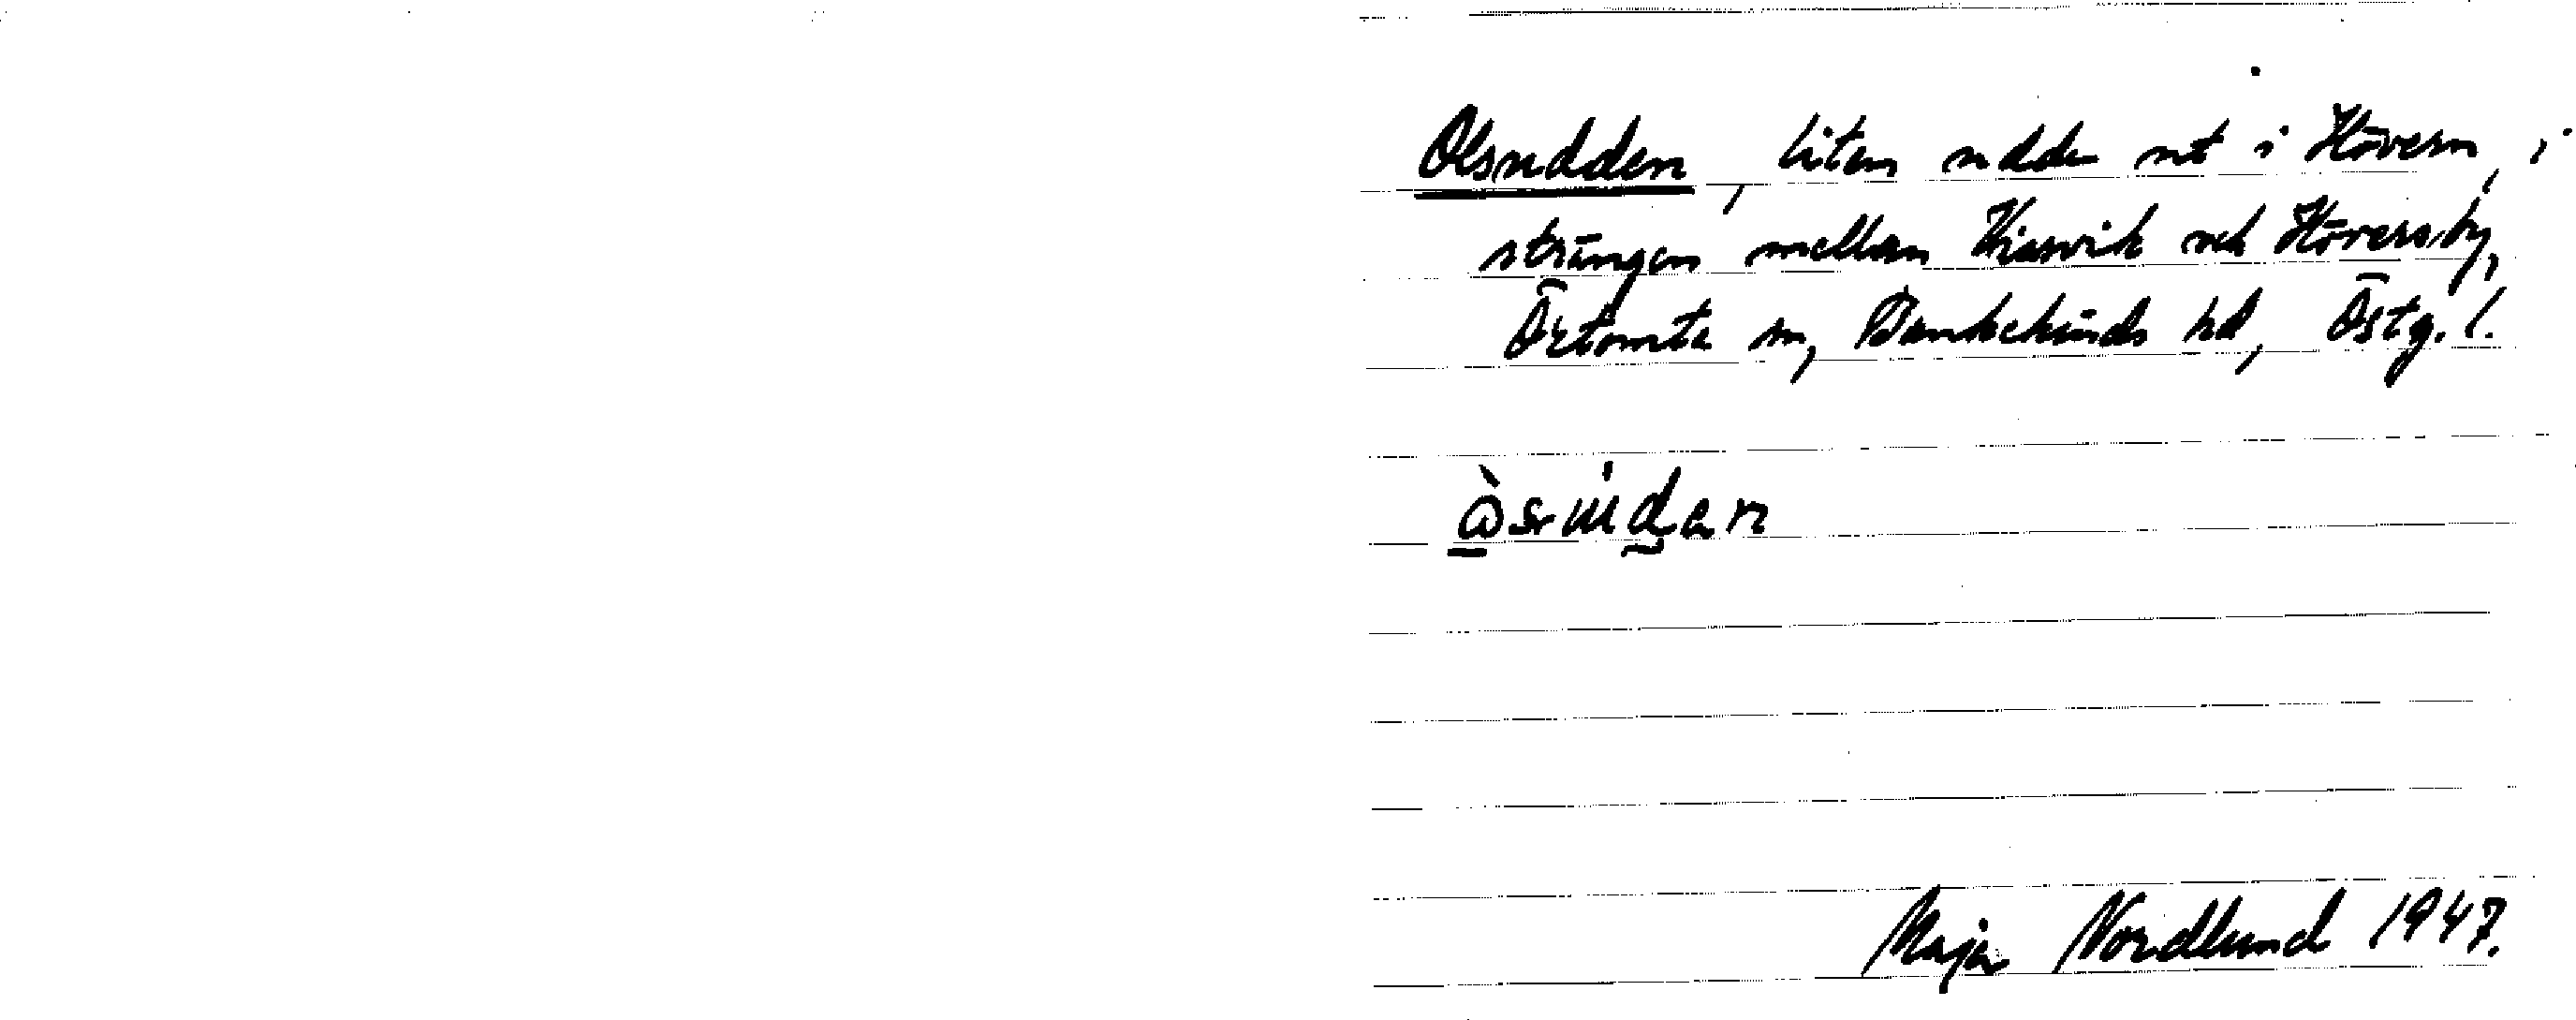 Olsudden, liten udde ut i Hövern, i
strängen mellan Viasvik och Höversby,
Örtomta sn, Bankekinds hd, Östg. l.
Maja Nordlund 1947.